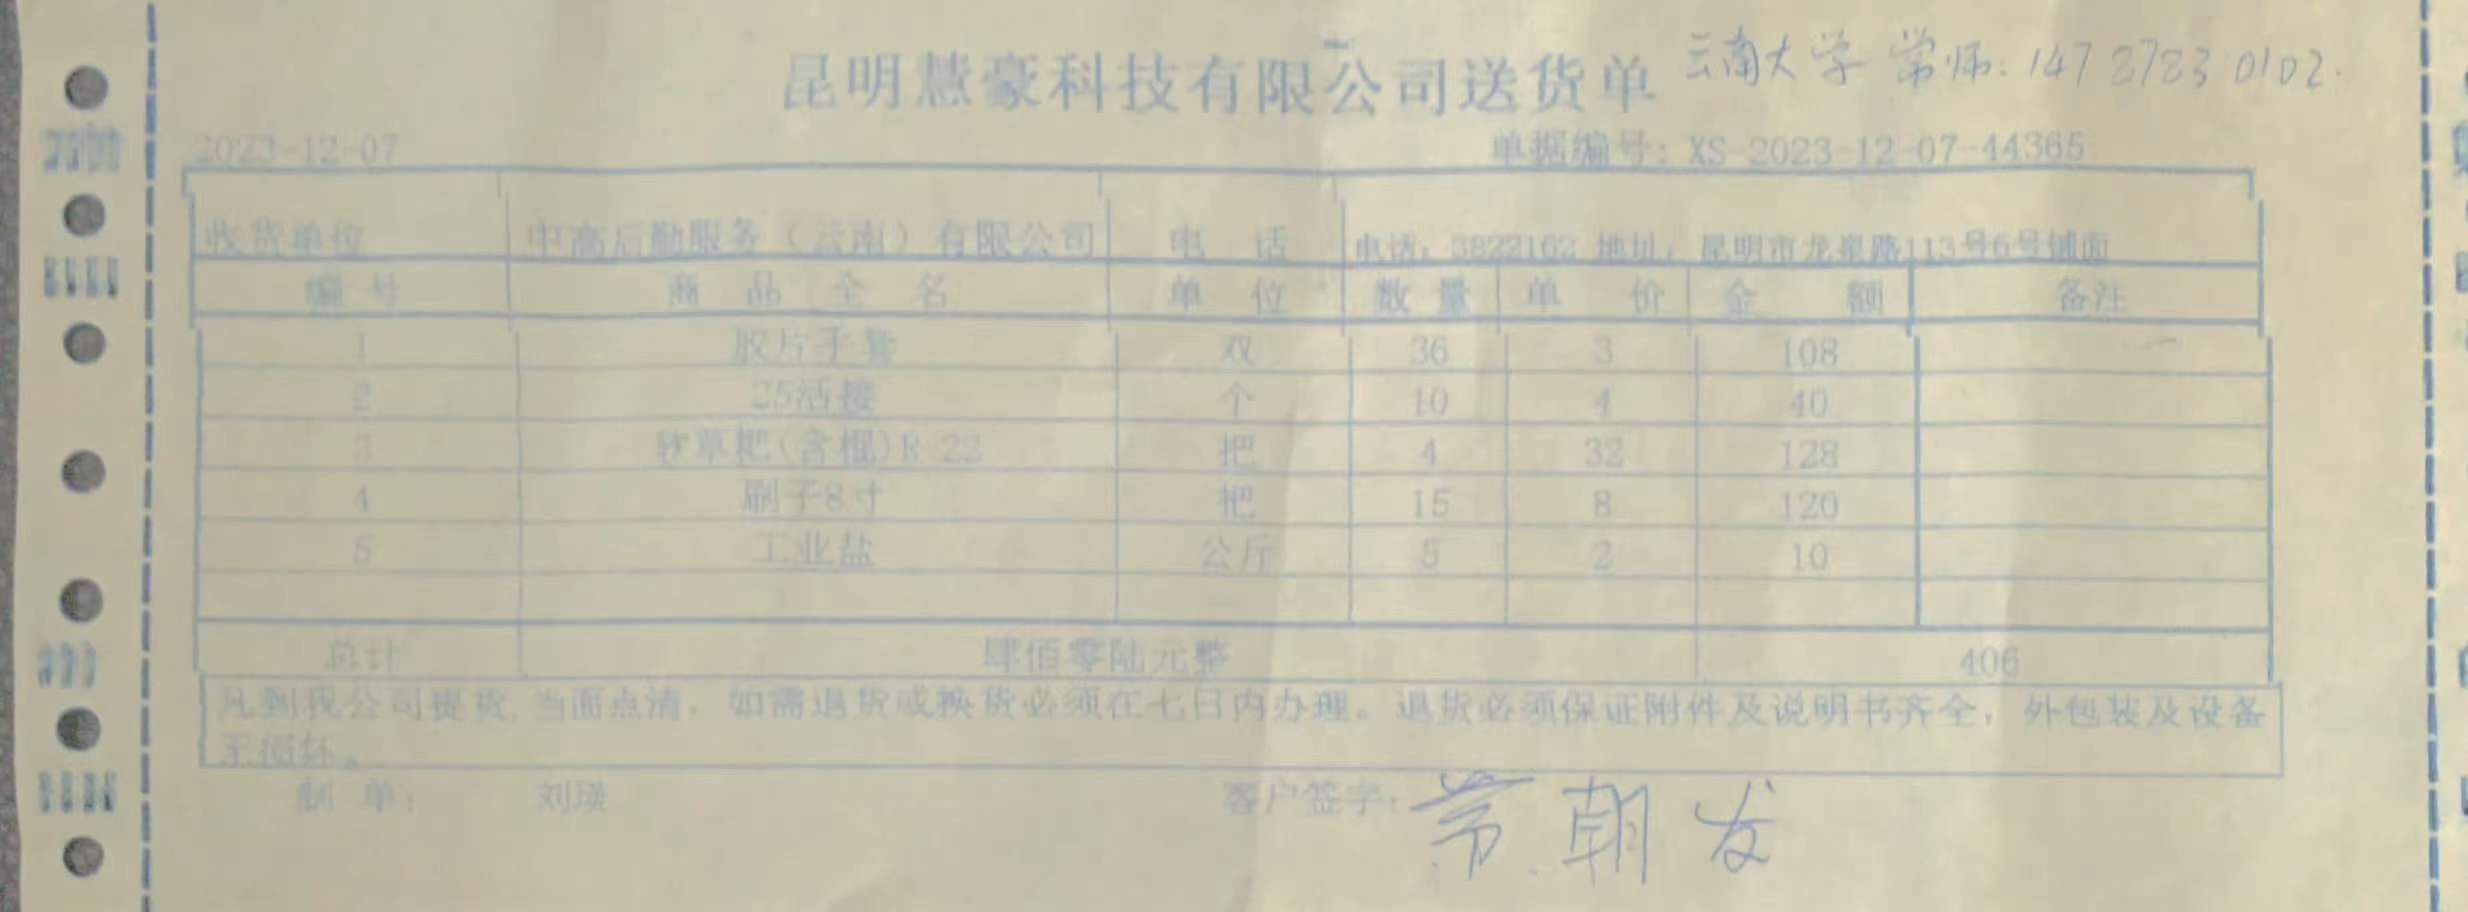 昆明慧豪科技有限公司送货单 云南大学 常师: 147 8783 0102.
2023-12-07 单据编号: XS-2023-12-07-44365
收货单位 中高后勤服务（云南）有限公司 电 话 电话: 3822162 地址: 昆明市龙泉路113号6号铺面
编 号 商 品 全 名 单 位 数 量 单 价 金 额 备注
1 胶片手套 双 36 3 108
2 25活接 个 10 4 40
3 软草耙(含棍)R-22 把 4 32 128
4 刷子8寸 把 15 8 120
5 工业盐 公斤 5 2 10
总计 肆佰零陆元整 406
凡到我公司提货,当面点清，如需退货或换货必须在七日内办理。退货必须保证附件及说明书齐全，外包装及设备
无损坏。
制 单: 刘瑛 客户签字: 常朝发